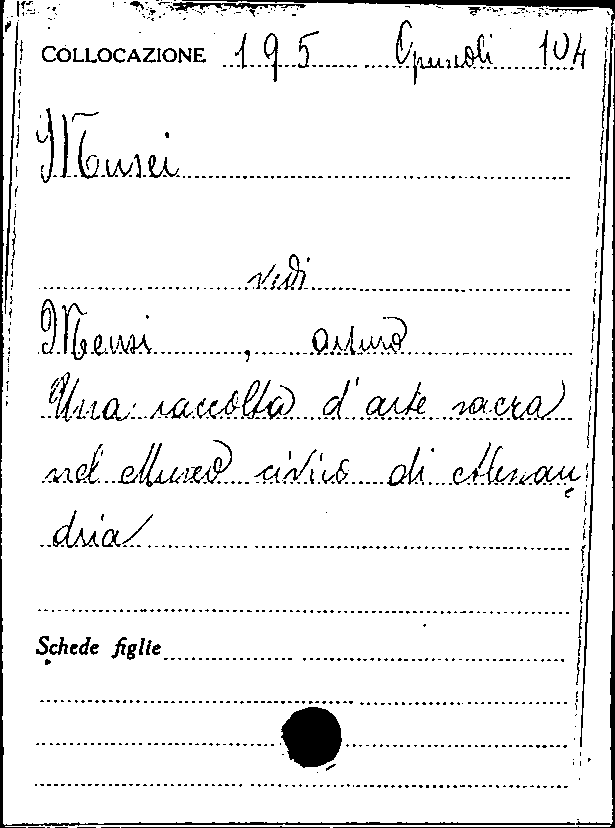 COLLOCAZIONE 195 Opuscoli 104
Musei
vedi
Mensi, Arturo
Una raccolta d'arte sacra
nel Museo civico di Alessan
dria
Schede figlie